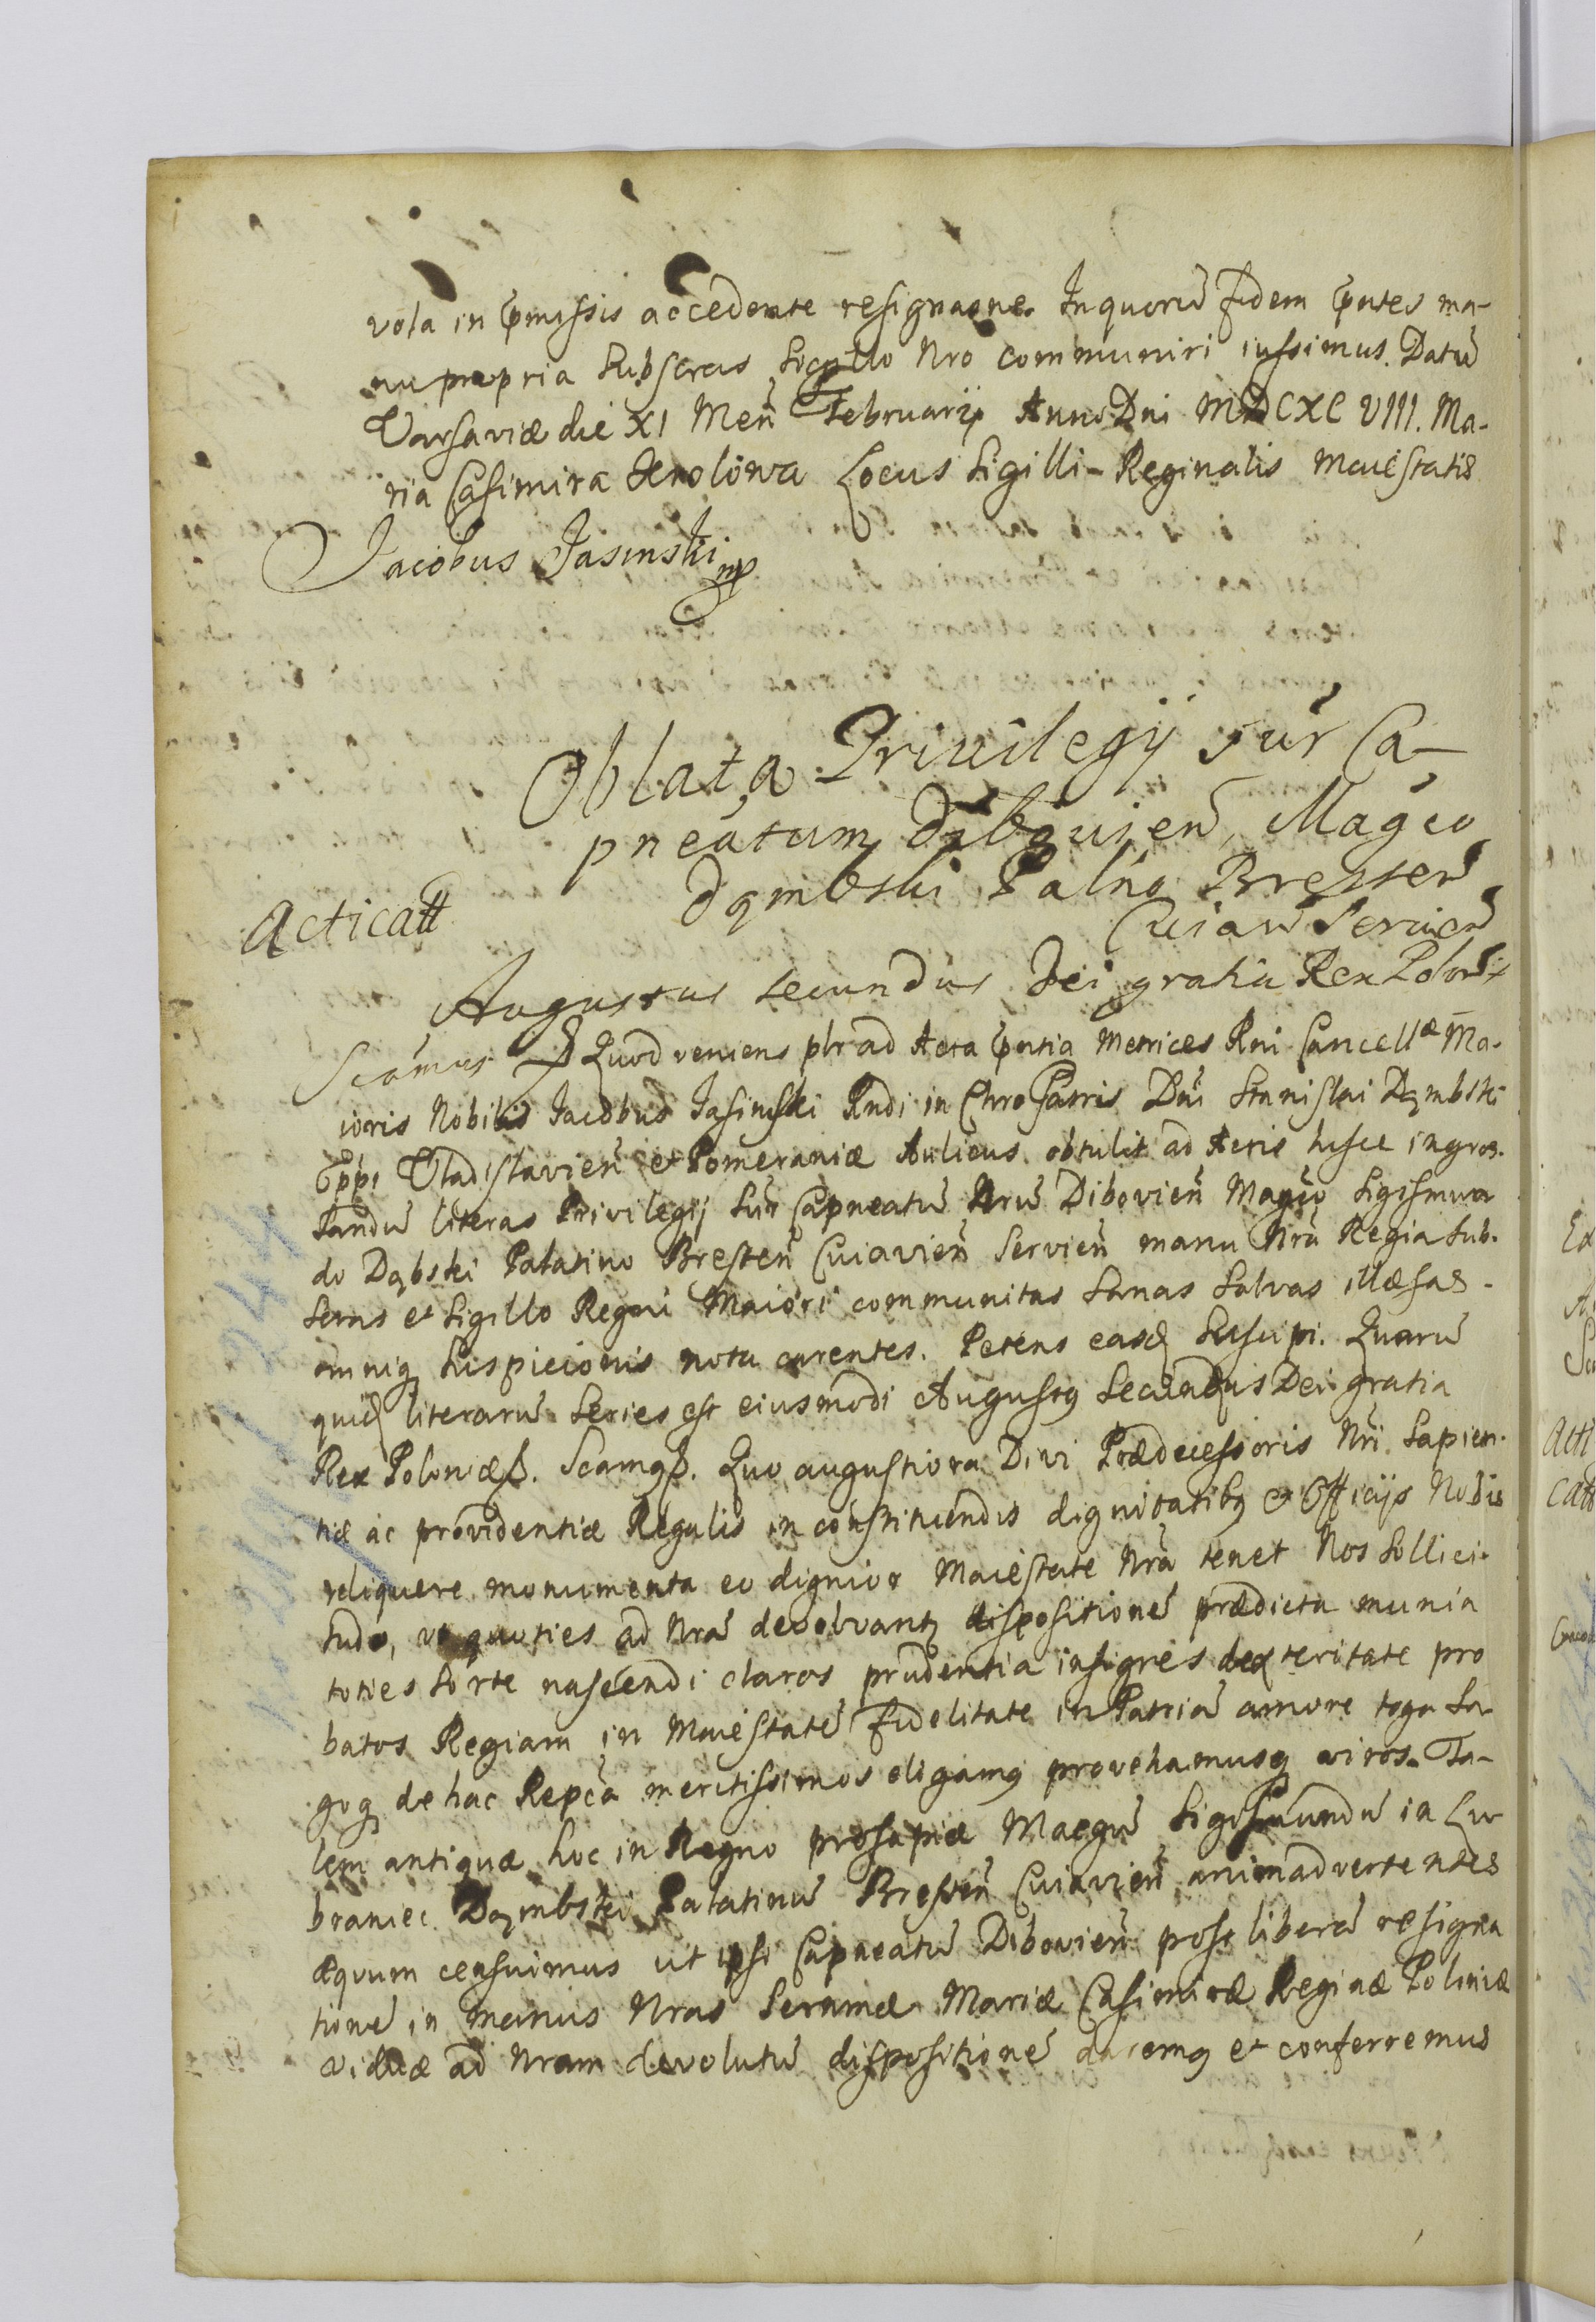 vola in pmissis accedente resignaone. In quoru fidem pntes ma-
nu propria subscras sigillo Nro communiri iussimus. Datu
Varsaviæ die XI Men Februarij Anno Dni MDCXCVIII. Ma-
ria Casimira Krolowa Locus Sigilli Reginalis Maiestatis
Jacobus Jasinski mp
Oblata Privilegij sur Ca-
pneatum Diboujen, Magco
Dąmbski Palno Bresten
Cuiav Servien
Acticatt
Augustus Secundus Dei gratia Rex Polon
Scamus Quod veniens plr ad Acta pntia Metrices Rni Cancellæ Ma-
ioris Nobilis Jacobus Jasinski Rndi in Chro Patris Dni Stanislai Dąmbski
Eppi Vladislavien et Pomeraniæ Aulicus obtulit ad Actis hisce ingros-
sandu literas Privilegij sur Capneatu Nru Dibovien Magco Sigismun
do Dąbski Palatino Bresten Cuiavien Servien manu Nra Regia sub-
scras et Sigillo Regni Maiori communitas sanas salvas illæsas
omniq suspicionis nota carentes. Petens easd suscipi. Quaru
quid literaru series est eiusmodi Augustus Secundus Dei gratia
Rex Poloniæ. Scamus. Quo augustiora Divi Prædecessoris Nri Sapien-
tiæ ac providentiæ Regalis in constituendis dignitatibus et Officijs Nobis
reliquere monumenta eo dignior Maiestate Nra tenet Nos sollici-
tudo, ut quoties ad Nra devolvantur dispositione prædicta munia
toties sorte nascendi claros prudentia insignes dexteritate pro
batos Regiam in Maiestate fidelitate in Patria amore toga sa
goq de hac Repca meritissimos eligamus provehamusq viros. Ta-
lem antiquæ hoc in Regno prosapiæ Magcu Sigismundu in Lu
braniec Dąmbski Palatinu Bresten Cuiavien animadvertentes
æquum censuimus ut ipsi Capneatu Dibovien post libera resigna
tione in manus Nras Serenmæ Mariæ Casimiræ Reginæ Poloniæ
viduæ ad Nram devolutu dispositione daremus et conferremus